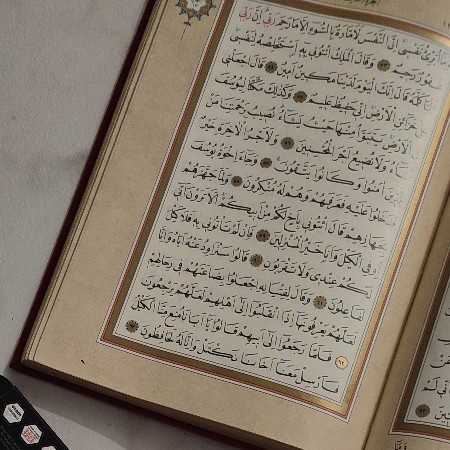 وَمَٓا اُبَرِّئُ نَفْسٖي اِنَّ النَّفْسَ لَاَمَّارَةٌ بِالسُّٓوءِ اِلَّا مَا رَحِمَ رَبّٖي اِنَّ رَبّٖي
غَفُورٌ رَحٖيمٌ ٥٣ وَقَالَ الْمَلِكُ ائْتُونٖي بِهٖٓ اَسْتَخْلِصْهُ لِنَفْسٖي
فَلَمَّا كَلَّمَهُ قَالَ اِنَّكَ الْيَوْمَ لَدَيْنَا مَكٖينٌ اَمٖينٌ ٥٤ قَالَ اجْعَلْنٖي
عَلٰى خَزَٓائِنِ الْاَرْضِ اِنّٖي حَفٖيظٌ عَلٖيمٌ ٥٥ وَكَذٰلِكَ مَكَّنَّا لِيُوسُفَ
فِي الْاَرْضِ يَتَبَوَّاُ مِنْهَا حَيْثُ يَشَٓاءُ نُصٖيبُ بِرَحْمَتِنَا مَنْ
نَشَٓاءُ وَلَا نُضٖيعُ اَجْرَ الْمُحْسِنٖينَ ٥٦ وَلَاَجْرُ الْاٰخِرَةِ خَيْرٌ
لِلَّذٖينَ اٰمَنُوا وَكَانُوا يَتَّقُونَ ٥٧ وَجَٓاءَ اِخْوَةُ يُوسُفَ
فَدَخَلُوا عَلَيْهِ فَعَرَفَهُمْ وَهُمْ لَهُ مُنْكِرُونَ ٥٨ وَلَمَّا جَهَّزَهُمْ
بِجَهَازِهِمْ قَالَ ائْتُونٖي بِاَخٍ لَكُمْ مِنْ اَبٖيكُمْ اَلَا تَرَوْنَ اَنّٖٓي
اُوفِي الْكَيْلَ وَاَنَا خَيْرُ الْمُنْزِلٖينَ ٥٩ فَاِنْ لَمْ تَأْتُونٖي بِهٖ فَلَا كَيْلَ
لَكُمْ عِنْدٖي وَلَا تَقْرَبُونِ ٦٠ قَالُوا سَنُرَاوِدُ عَنْهُ اَبَاهُ وَاِنَّا
لَفَاعِلُونَ ٦١ وَقَالَ لِفِتْيَانِهِ اجْعَلُوا بِضَاعَتَهُمْ فٖي رِحَالِهِمْ
لَعَلَّهُمْ يَعْرِفُونَهَٓا اِذَا انْقَلَبُٓوا اِلٰٓى اَهْلِهِمْ لَعَلَّهُمْ يَرْجِعُونَ ٦٢
فَلَمَّا رَجَعُٓوا اِلٰٓى اَبٖيهِمْ قَالُوا يَٓا اَبَانَا مُنِعَ مِنَّا الْكَيْلُ
فَاَرْسِلْ مَعَنَٓا اَخَانَا نَكْتَلْ وَاِنَّا لَهُ لَحَافِظُونَ ٦٣